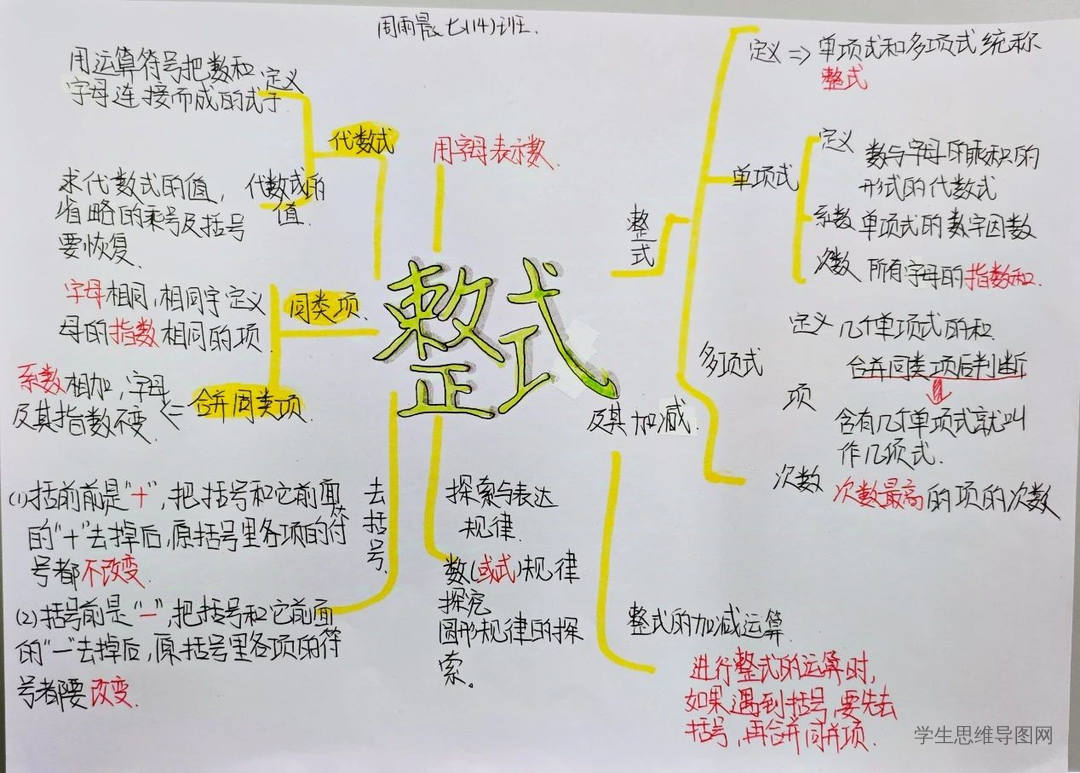 周雨晨七(14)班.
用运算符号把数和
字母连接而成的式子
定义
代数式
求代数式的值,
省略的乘号及括号
要恢复.
代数式的
值.
用字母表示数.
字母相同,相同字
母的指数相同的项.
定义
同类项.
系数相加,字母
及其指数不变.
=
合并同类项.
整式
及其加减.
(1)括前前是"+",把括号和它前面
的"+"去掉后,原括号里各项的符
号都不改变.
(2)括号前是"一",把括号和它前面
的"一"去掉后,原括号里各项的符
号都要改变.
去
括
号.
探索与表达
规律.
数(或式)规律
探究
图形规律的探
索。
整式的加减运算.
进行整式的运算时,
如果遇到括号,要先去
括号,再合并同并项.
整
式
定义 => 单项式和多项式统称
整式
单项式
定义
数与字母的乘积的
形式的代数式
系数 单项式的数字因数
次数 所有字母的指数和.
多项式
定义 几个单项式的和.
合并同类项后判断
项
含有几个单项式就叫
作几项式.
次数 次数最高的项的次数
学生思维导图网